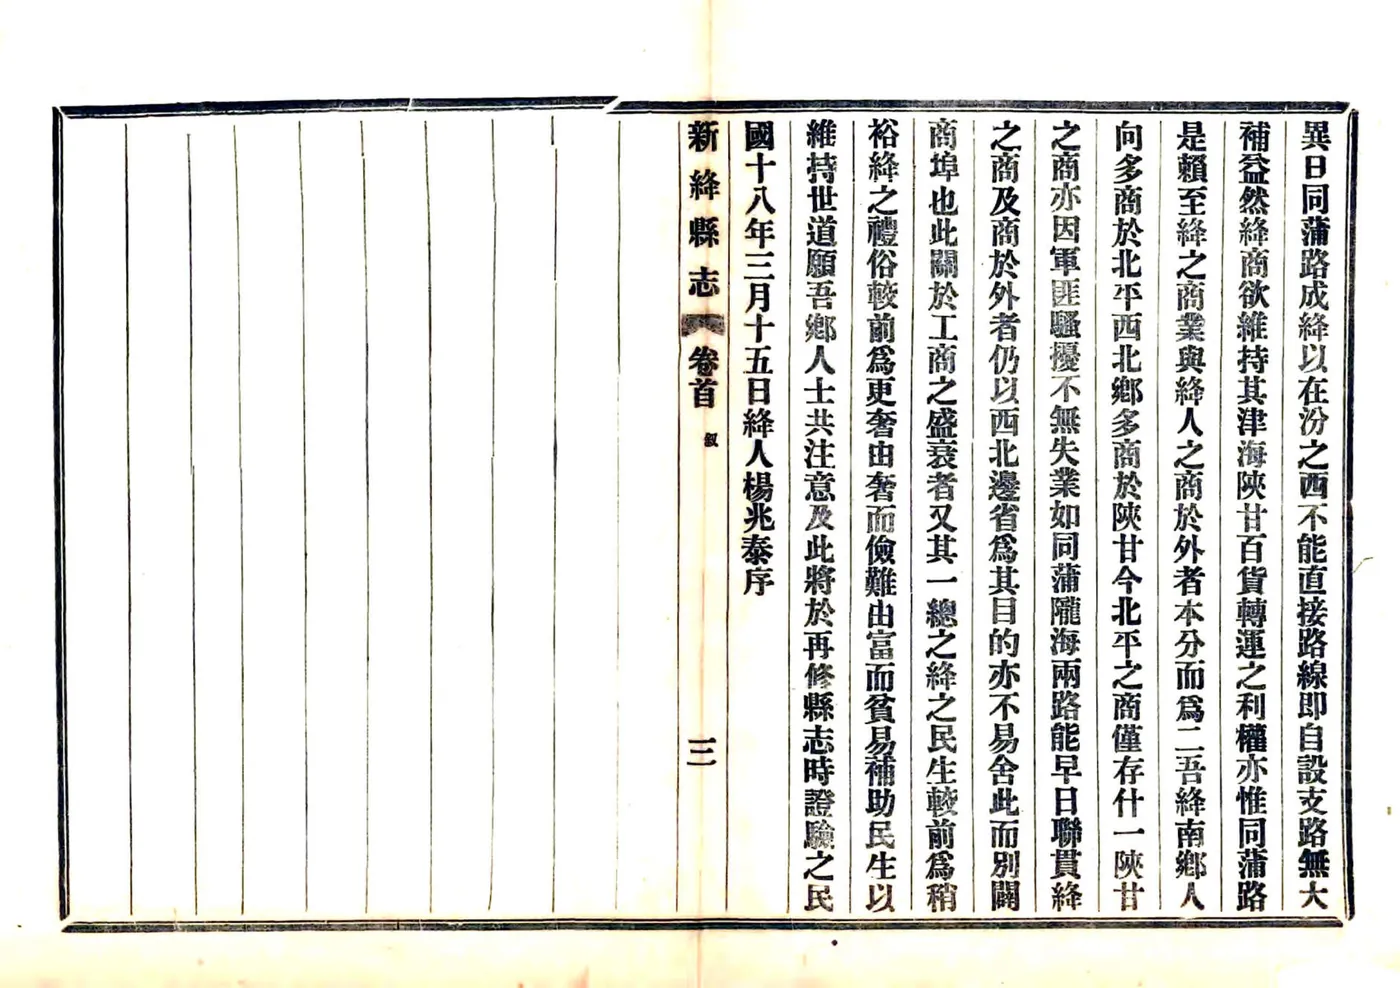 異日同蒲路成絳以在汾之西不能直接路線即自設支路無大
補益然絳商欲維持其津海陝甘百貨轉運之利權亦惟同蒲路
是賴至絳之商業與絳人之商於外者本分而爲二吾絳南鄉人
向多商於北平西北鄉多商於陝甘今北平之商僅存什一陝甘
之商亦因軍匪騷擾不無失業如同蒲隴海兩路能早日聯貫絳
之商及商於外者仍以西北邊省爲其目的亦不易舍此而別闢
商埠也此關於工商之盛衰者又其一總之絳之民生較前爲稍
裕絳之禮俗較前爲更奢由奢而儉難由富而貧易補助民生以
維持世道願吾鄉人士共注意及此將於再修縣志時證驗之民
國十八年三月十五日絳人楊兆泰序
新絳縣志 卷首 叙 三